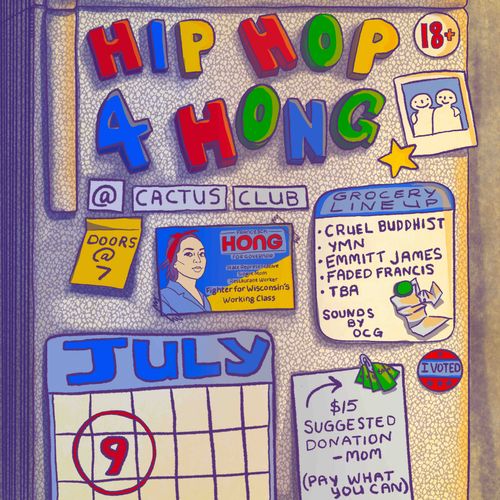 HIP HOP
18+
4 HONG
@ CACTUS CLUB
DOORS
@
7
FRANCESCA
HONG
FOR GOVERNOR
State Representative
Single Mom
Restaurant Worker
Fighter for Wisconsin's
Working Class
GROCERY
LINE UP
• CRUEL BUDDHIST
• YMN
• EMMITT JAMES
• FADED FRANCIS
• TBA
SOUNDS
BY
OCG
JULY
9
I VOTED
$15
SUGGESTED
DONATION
- MOM
(PAY WHAT
YOU CAN)